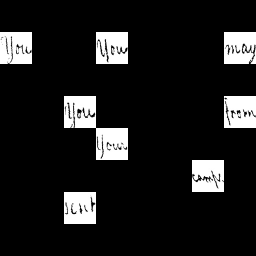 You You may
You from
Your
camp.
sent